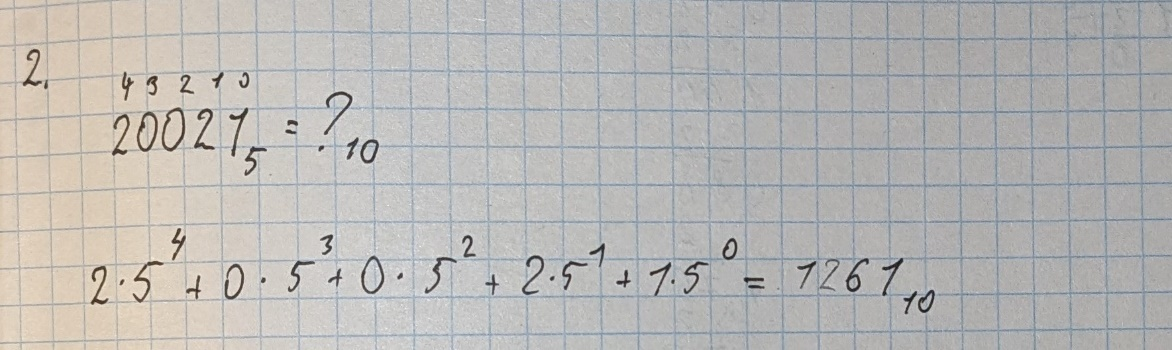 2.
4 3 2 1 0
20021₅ = ?₁₀
2·5⁴ + 0·5³ + 0·5² + 2·5¹ + 1·5⁰ = 1261₁₀